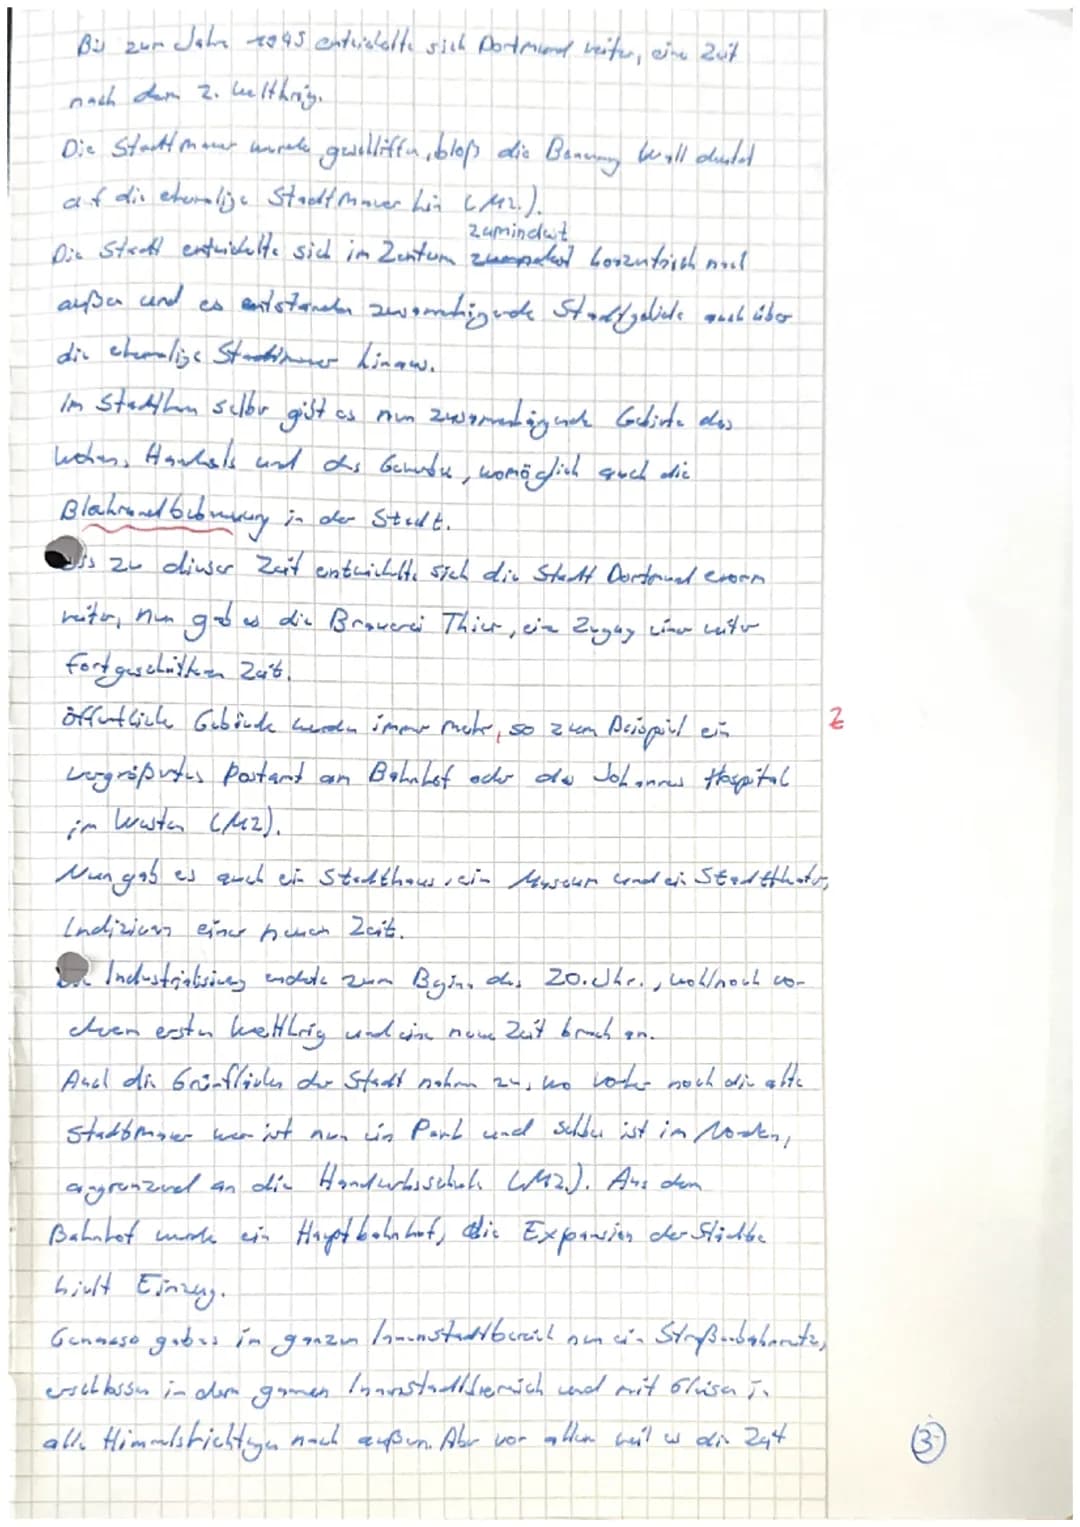 Bis zum Jahr 1945 entwickelte sich Dortmund weiter, eine Zeit
nach dem 2. Weltkrieg.
Die Stadtmauer wurde geschliffen, bloß die Benennung Wall deutet
auf die ehemalige Stadtmauer hin (M2.).
zumindest
Die Stadt entwickelte sich im Zentrum konzentrisch nach
außen und es entstanden zusammenhängende Stadtgebiete auch über
die ehemalige Stadtmauer hinaus.
Im Stadtkern selber gibt es nun zusammenhängende Gebiete des
Wohnens, Handels und des Gewerbes, womöglich auch die
Blockrandbebauung in der Stadt.
Bis zu dieser Zeit entwickelte sich die Stadt Dortmund enorm
weiter, nun gab es die Brauerei Thier, ein einer weiter
fortgeschrittenen Zeit.
Öffentliche Gebäude werden immer mehr, so zum Beispiel ein
Z
vergrößertes Postamt am Bahnhof oder das Johannes Hospital
im Westen (M2).
Nun gab es auch ein Stadthaus, ein Museum und ein Stadttheater,
Indizien einer neuen Zeit.
Die Industrialisierung endete zum Beginn des 20. Jhr., wohl noch vor
dem ersten Weltkrieg und eine neue Zeit brach an.
Auch die Grünflächen der Stadt nahmen zu, wo vorher noch die alte
Stadtmauer war ist nun ein Park und selber ist im Norden,
angrenzend an die Handwerksschule (M2.). Aus dem
Bahnhof wurde ein Hauptbahnhof, die Expansion der Städte
hielt Einzug.
Genauso gab es im ganzen Innenstadtbereich nun ein Straßenbahnnetz,
erschlossen in dem ganzen Innenstadtbereich und mit Gleisen in
alle Himmelsrichtungen nach außen. Aber vor allem weil es die Zeit
3